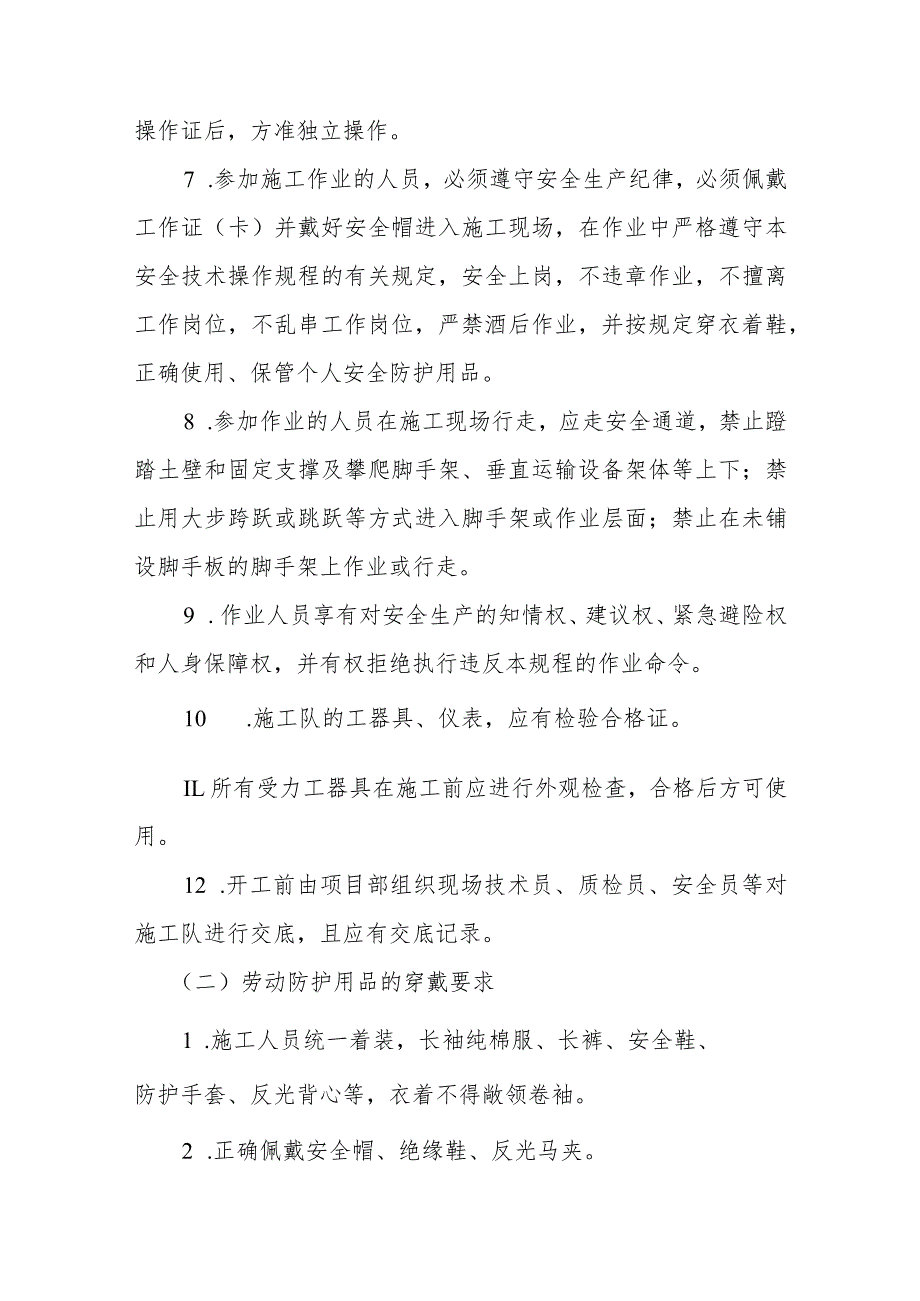 操作证后，方准独立操作。
7 .参加施工作业的人员，必须遵守安全生产纪律，必须佩戴
工作证（卡）并戴好安全帽进入施工现场，在作业中严格遵守本
安全技术操作规程的有关规定，安全上岗，不违章作业，不擅离
工作岗位，不乱串工作岗位，严禁酒后作业，并按规定穿衣着鞋，
正确使用、保管个人安全防护用品。
8 .参加作业的人员在施工现场行走，应走安全通道，禁止蹬
踏土壁和固定支撑及攀爬脚手架、垂直运输设备架体等上下；禁
止用大步跨跃或跳跃等方式进入脚手架或作业层面；禁止在未铺
设脚手板的脚手架上作业或行走。
9 .作业人员享有对安全生产的知情权、建议权、紧急避险权
和人身保障权，并有权拒绝执行违反本规程的作业命令。
10 .施工队的工器具、仪表，应有检验合格证。
IL所有受力工器具在施工前应进行外观检查，合格后方可使
用。
12 .开工前由项目部组织现场技术员、质检员、安全员等对
施工队进行交底，且应有交底记录。
（二）劳动防护用品的穿戴要求
1 .施工人员统一着装，长袖纯棉服、长裤、安全鞋、
防护手套、反光背心等，衣着不得敞领卷袖。
2 .正确佩戴安全帽、绝缘鞋、反光马夹。